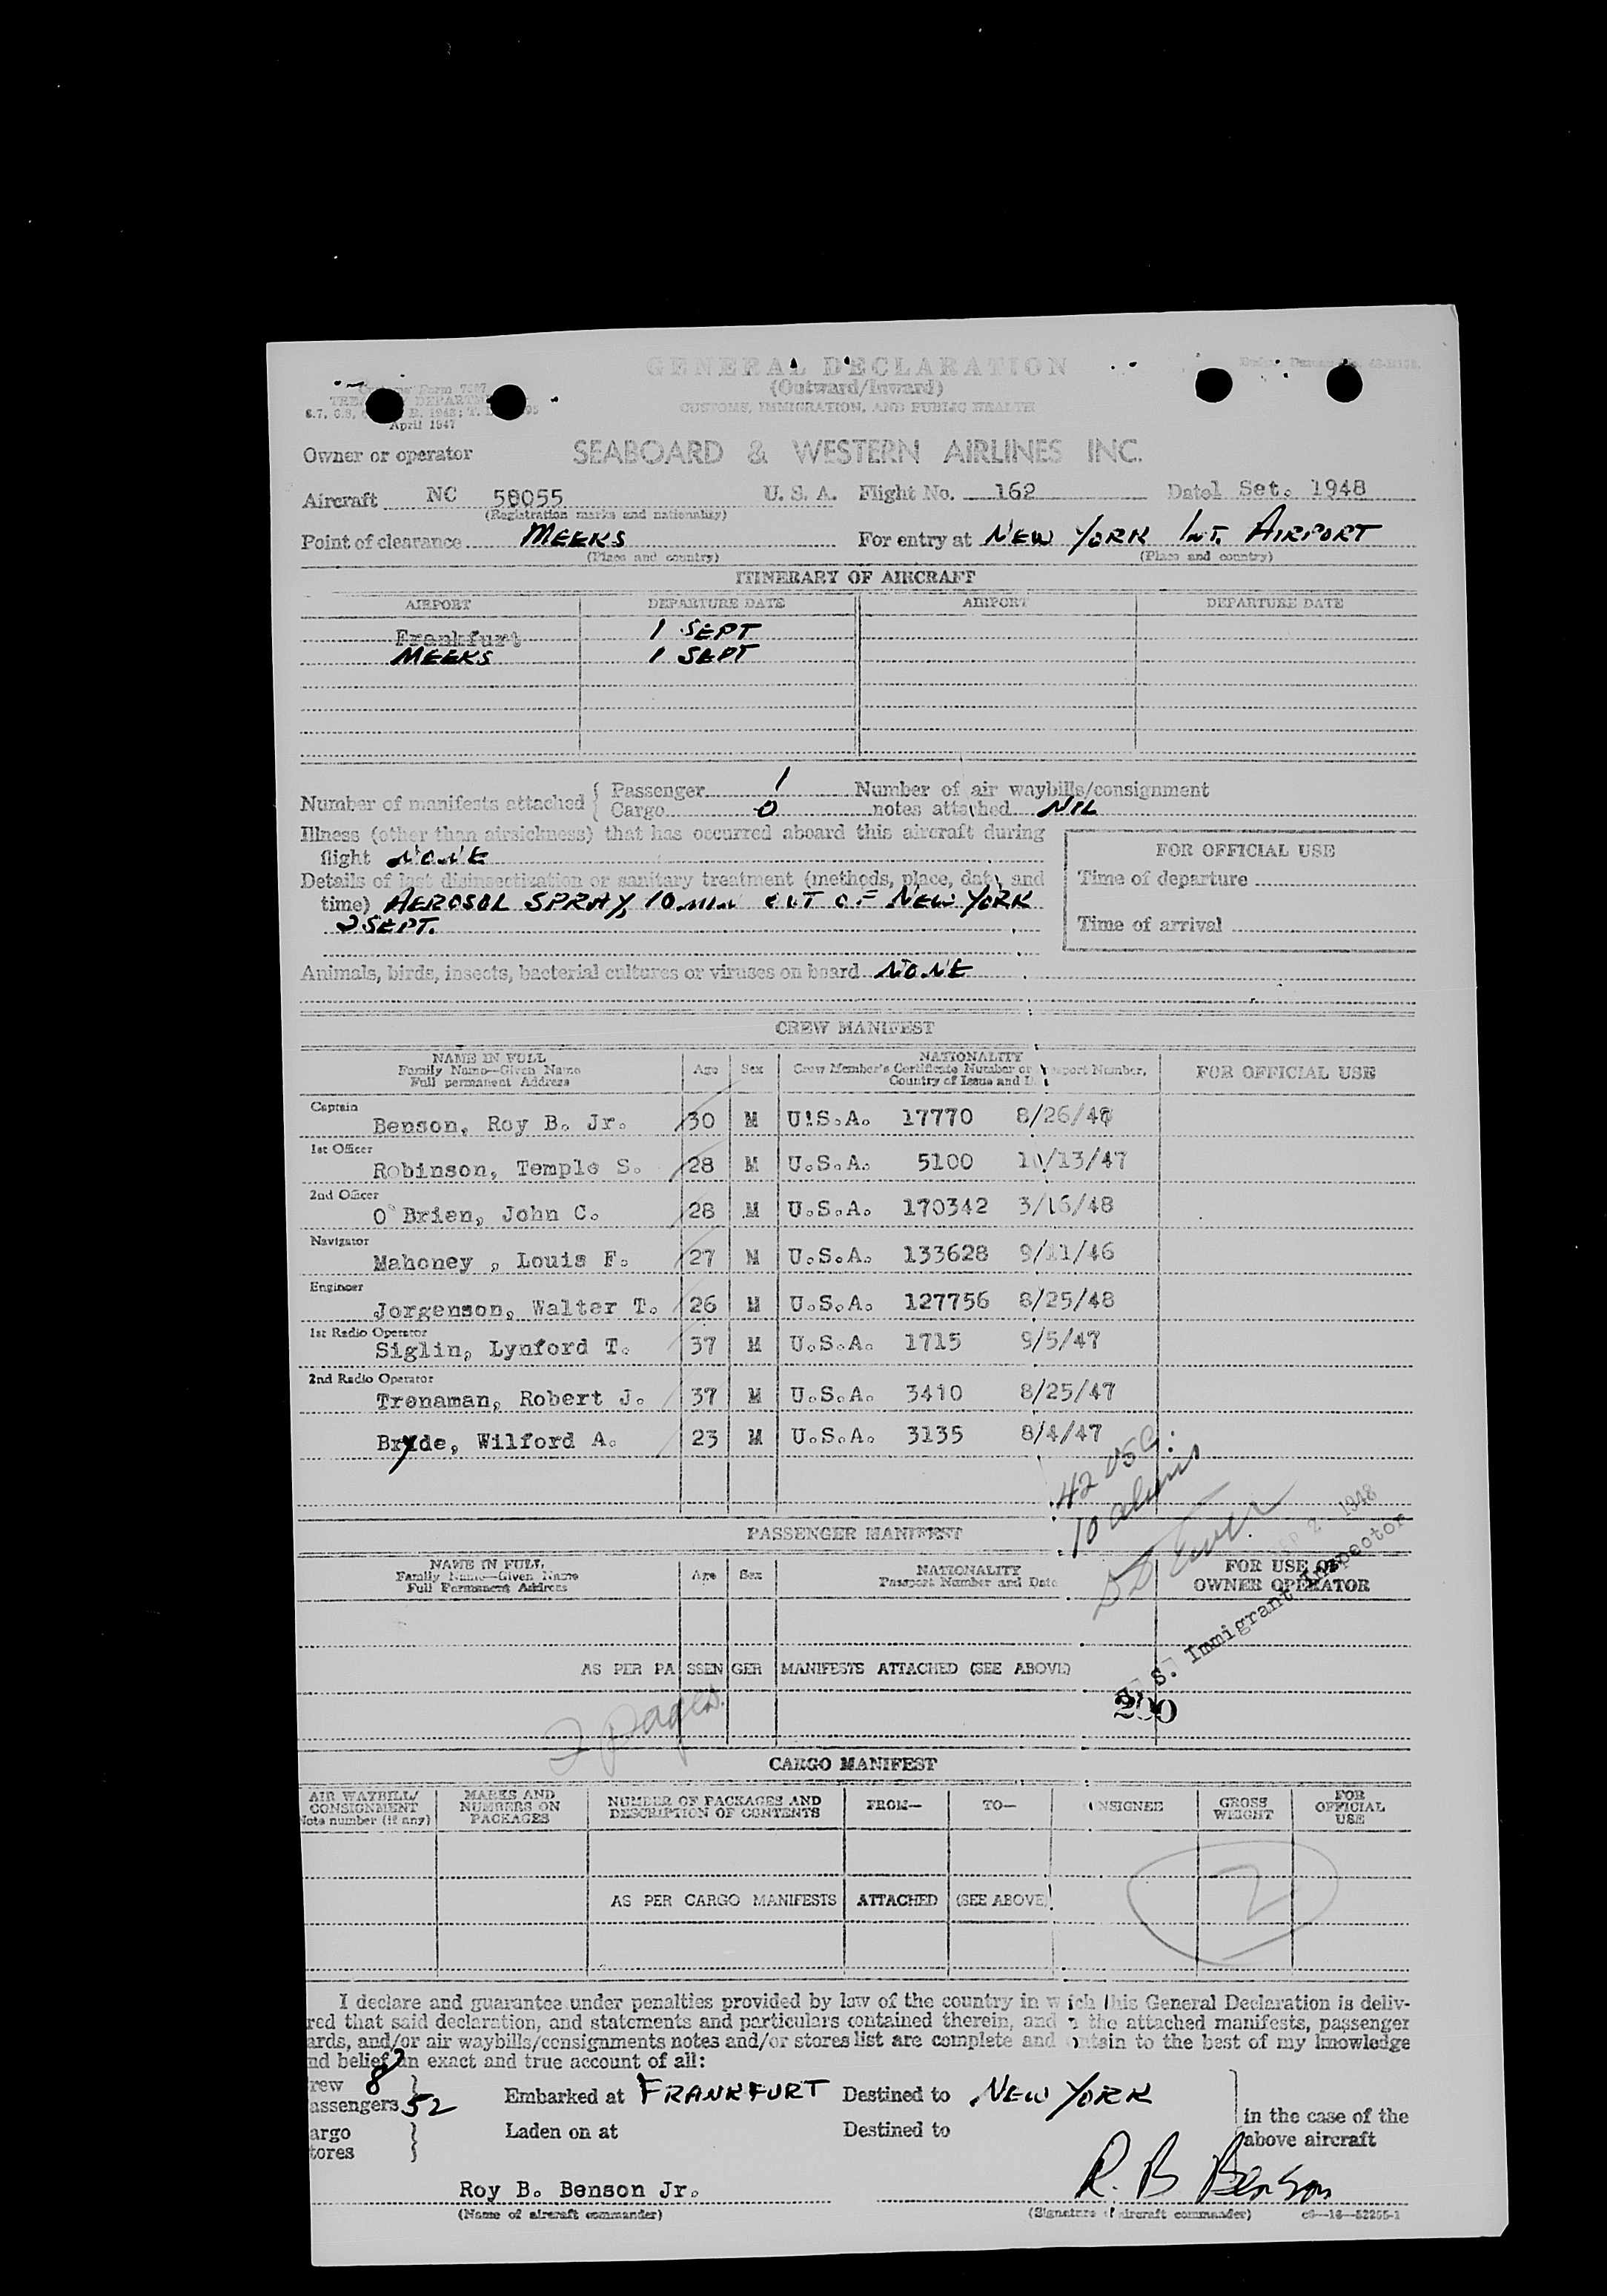 GENERAL DECLARATION
(Outward/Inward)
CUSTOMS, IMMIGRATION, AND PUBLIC HEALTH
Form 7507
TREASURY DEPARTMENT
April 1947
Owner or operator SEABOARD & WESTERN AIRLINES INC.
Aircraft NC 58055 U. S. A. Flight No. 162 Date 1 Set. 1948
(Registration marks and nationality)
Point of clearance MEEKS For entry at NEW YORK INT. AIRPORT
(Place and country) (Place and country)
ITINERARY OF AIRCRAFT
AIRPORT DEPARTURE DATE AIRPORT DEPARTURE DATE
Frankfurt 1 SEPT
MEEKS 1 SEPT
Number of manifests attached { Passenger 1 Number of air waybills/consignment
Cargo 0 notes attached NIL
Illness (other than airsickness) that has occurred aboard this aircraft during
flight NONE
FOR OFFICIAL USE
Details of last disinsectization or sanitary treatment (methods, place, date, and
time) AEROSOL SPRAY, 10 MIN OUT OF NEW YORK
2 SEPT.
Time of departure
Time of arrival
Animals, birds, insects, bacterial cultures or viruses on board NONE
CREW MANIFEST
NAME IN FULL
Family Name—Given Name
Full permanent Address
Age Sex
NATIONALITY
Crew Member's Certificate Number or Passport Number,
Country of Issue and
FOR OFFICIAL USE
Captain
Benson, Roy B. Jr. 30 M U.S.A. 17770 8/26/48
1st Officer
Robinson, Temple S. 28 M U.S.A. 5100 10/13/47
2nd Officer
O'Brien, John C. 28 M U.S.A. 170342 3/16/48
Navigator
Mahoney , Louis F. 27 M U.S.A. 133628 9/11/46
Engineer
Jorgenson, Walter T. 26 M U.S.A. 127756 8/25/48
1st Radio Operator
Siglin, Lynford T. 37 M U.S.A. 1715 9/5/47
2nd Radio Operator
Trenaman, Robert J. 37 M U.S.A. 3410 8/25/47
Bryde, Wilford A. 23 M U.S.A. 3135 8/4/47
42 USC:
10 aliens
2 1948
S. Immigrant Inspector
200
PASSENGER MANIFEST
NAME IN FULL
Family Name—Given Name
Full Permanent Address
Age Sex
NATIONALITY
Passport Number and Date
FOR USE OF
OWNER OPERATOR
AS PER PASSENGER MANIFESTS ATTACHED (SEE ABOVE)
2 pages
CARGO MANIFEST
AIR WAYBILL/
CONSIGNMENT
Note number (if any)
MARKS AND
NUMBERS ON
PACKAGES
NUMBER OF PACKAGES AND
DESCRIPTION OF CONTENTS
FROM— TO— CONSIGNEE
GROSS
WEIGHT
FOR
OFFICIAL
USE
AS PER CARGO MANIFESTS ATTACHED (SEE ABOVE)
2
I declare and guarantee under penalties provided by law of the country in which this General Declaration is deliv-
red that said declaration, and statements and particulars contained therein, and the attached manifests, passenger
ards, and/or air waybills/consignments notes and/or stores list are complete and contain to the best of my knowledge
nd belief an exact and true account of all:
rew 8
assengers 52 Embarked at FRANKFURT Destined to NEW YORK
in the case of the
above aircraft
argo Laden on at Destined to
tores
R. B Benson
Roy B. Benson Jr.
(Name of aircraft commander) (Signature of aircraft commander) c6—16—52255-1